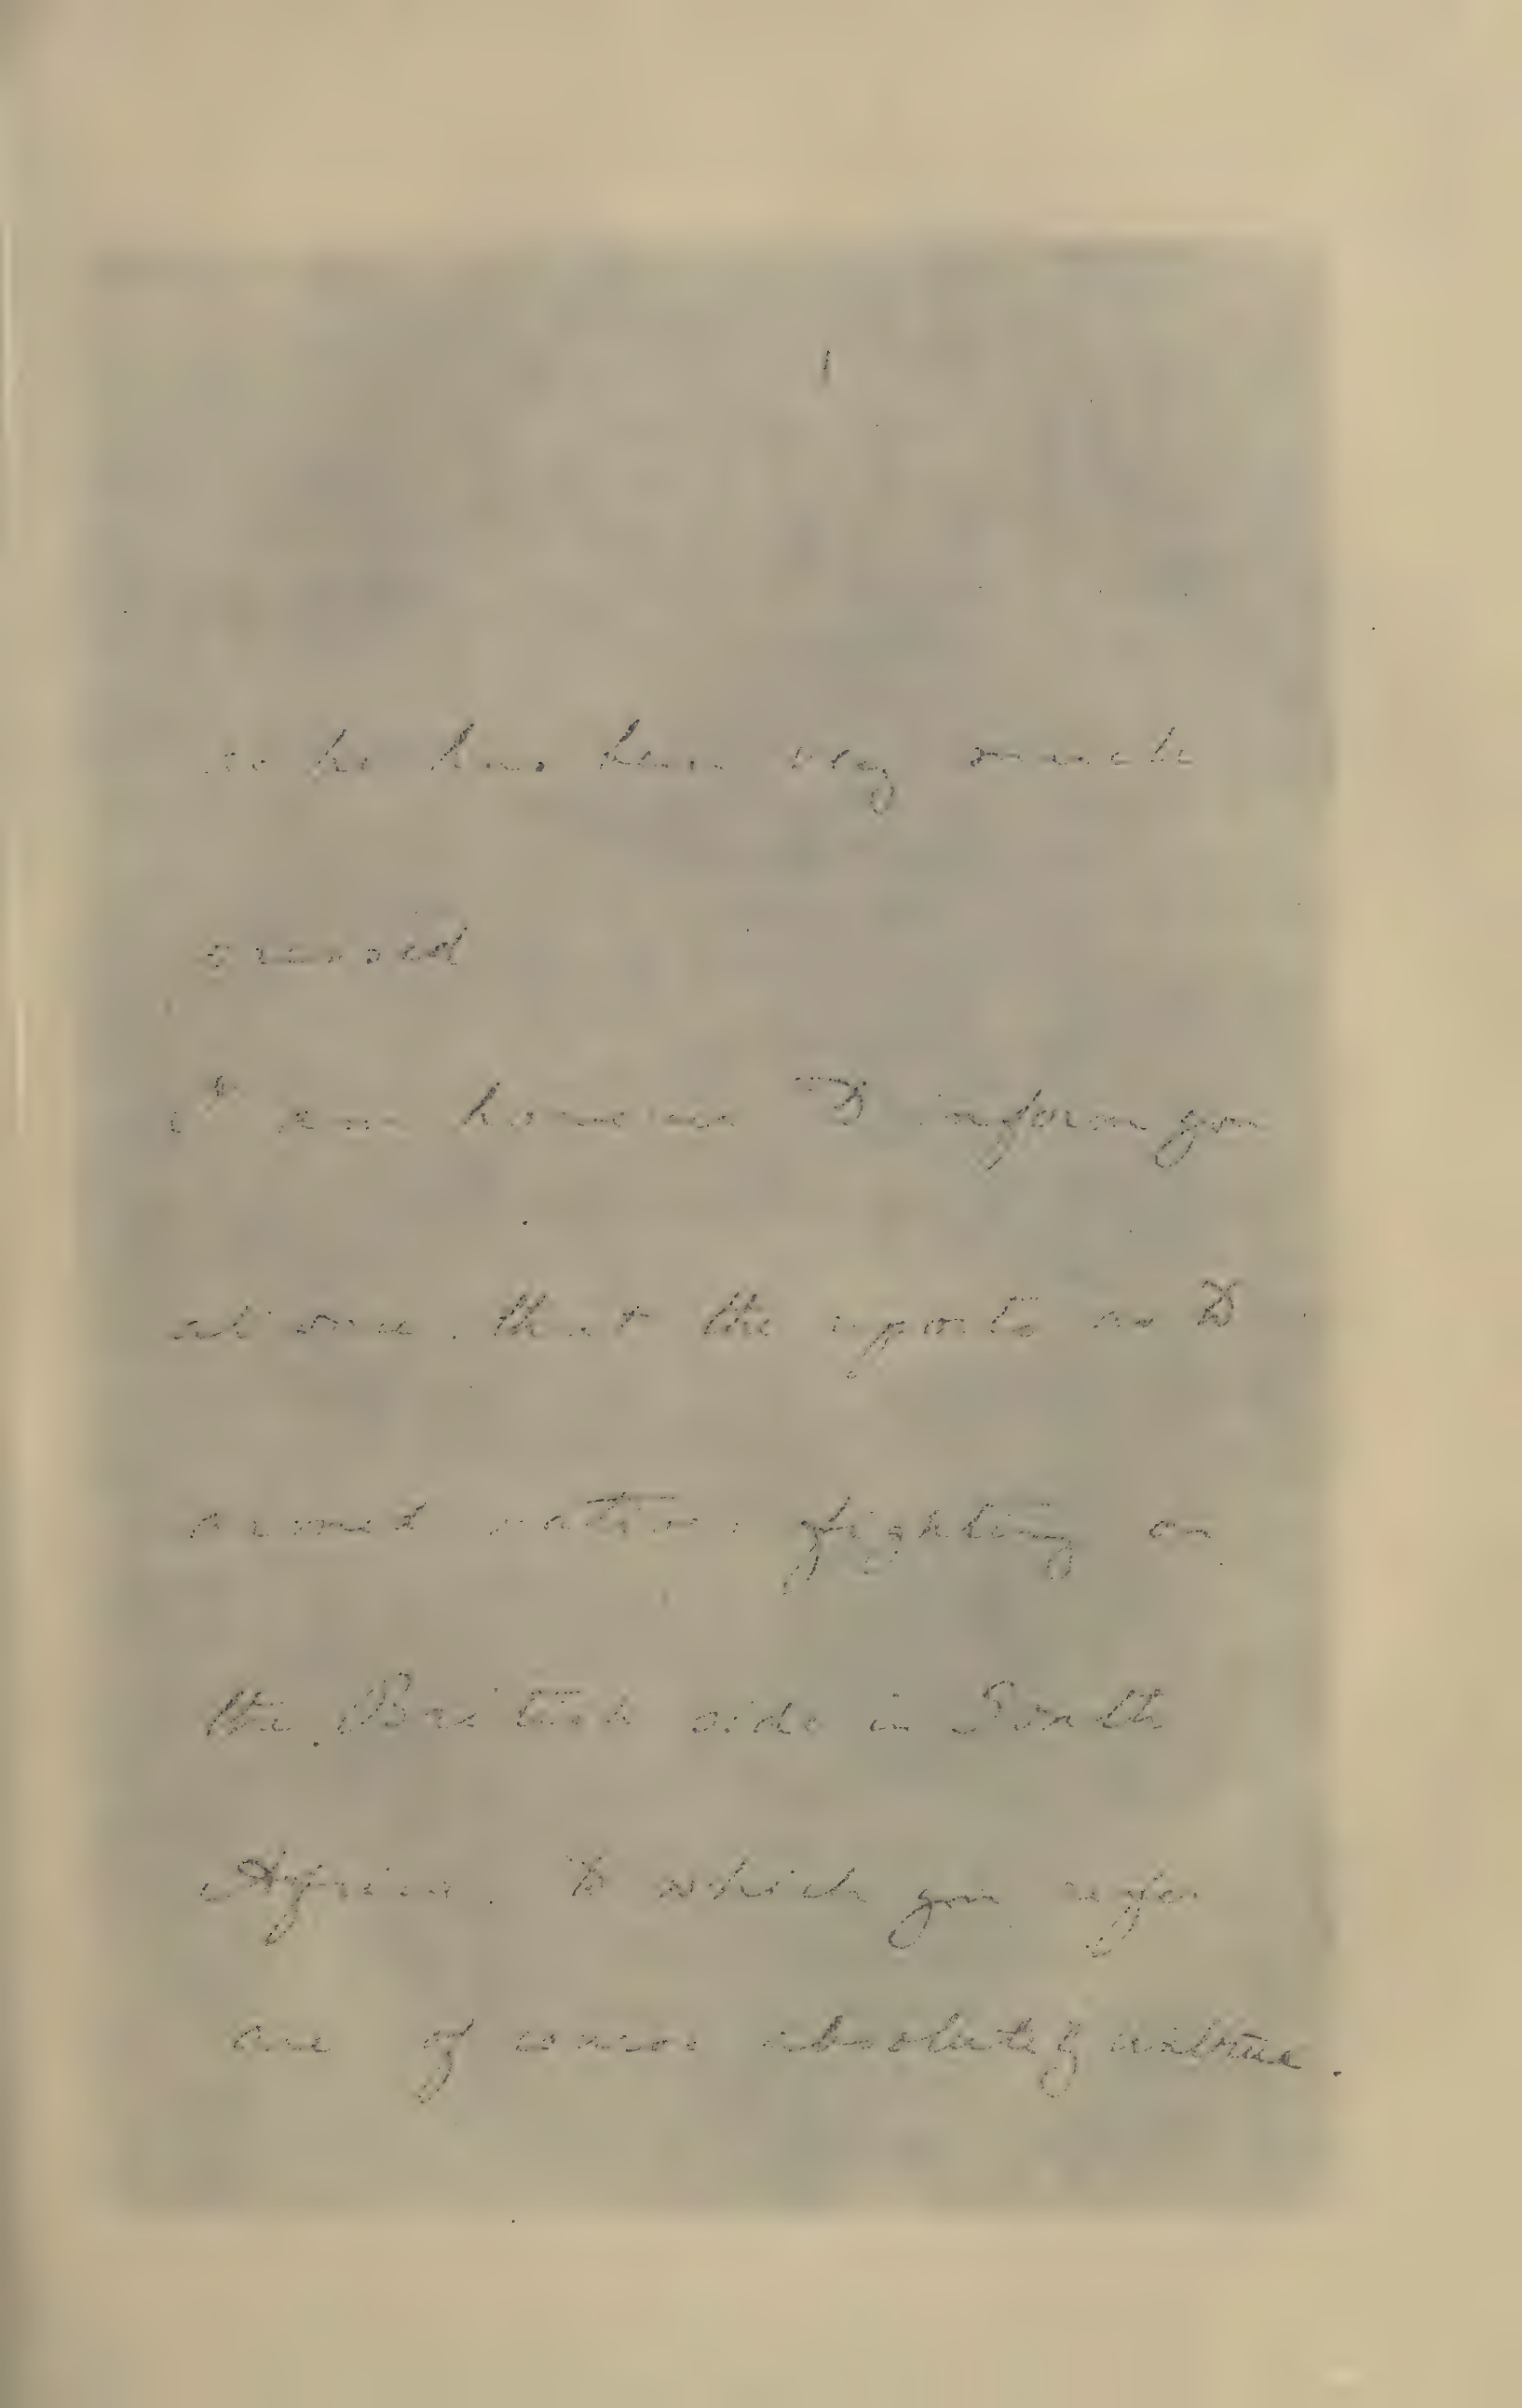 as he has been very much
occupied
I am however to inform you
at once that the reports as to
armed natives fighting on
the British side in South
Africa. to which you refer
are of course absolutely untrue.